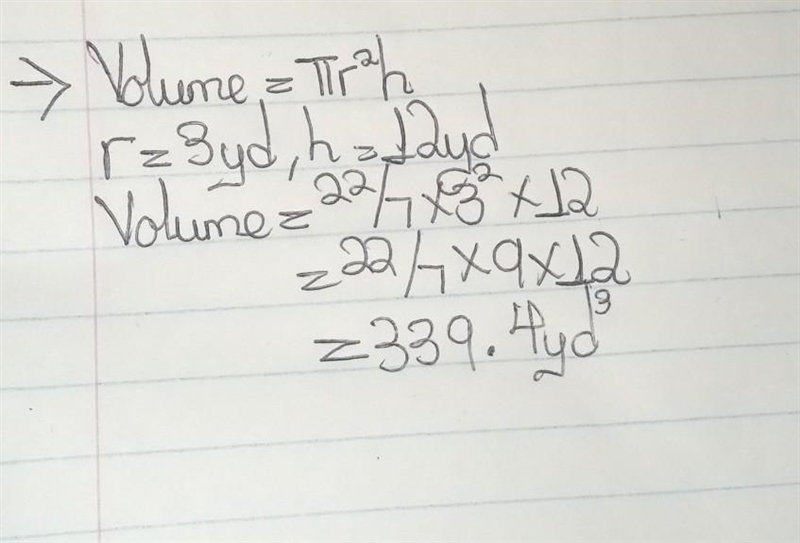 → Volume = πr²h
r = 3yd, h = 12yd
Volume = 22/7 × 3² × 12
= 22/7 × 9 × 12
= 339.4yd³